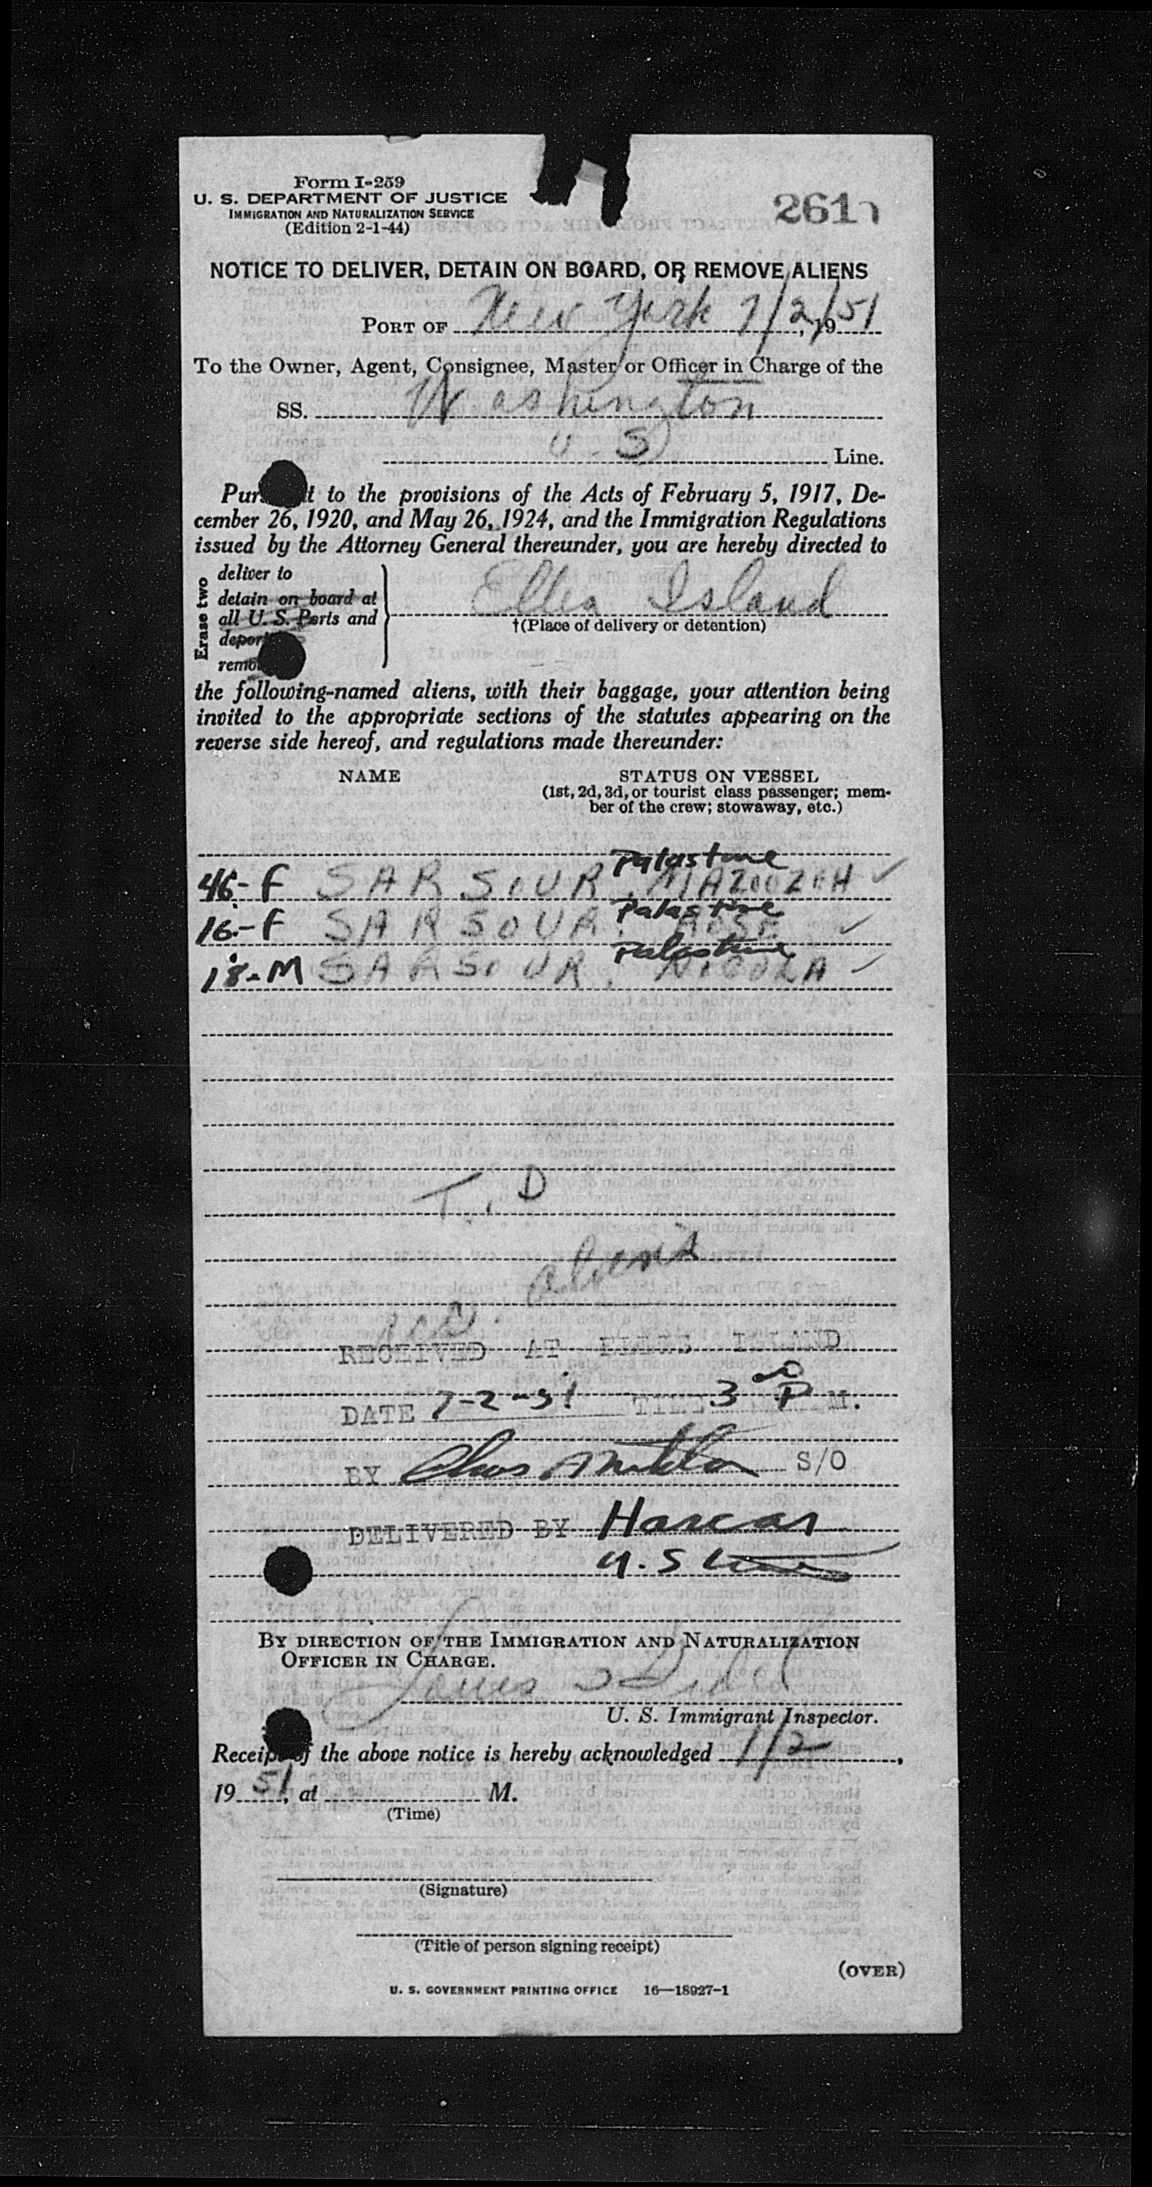 Form I-259
U. S. DEPARTMENT OF JUSTICE
IMMIGRATION AND NATURALIZATION SERVICE
(Edition 2-1-44)
261
NOTICE TO DELIVER, DETAIN ON BOARD, OR REMOVE ALIENS
PORT OF New York 7/2, 1951
To the Owner, Agent, Consignee, Master or Officer in Charge of the
SS. Washington
U. S Line.
Pursuant to the provisions of the Acts of February 5, 1917, De-
cember 26, 1920, and May 26, 1924, and the Immigration Regulations
issued by the Attorney General thereunder, you are hereby directed to
Erase two
deliver to
detain on board at
all U. S. Ports and
deport
remove
Ellis Island
†(Place of delivery or detention)
the following-named aliens, with their baggage, your attention being
invited to the appropriate sections of the statutes appearing on the
reverse side hereof, and regulations made thereunder:
NAME STATUS ON VESSEL
(1st, 2d, 3d, or tourist class passenger; mem-
ber of the crew; stowaway, etc.)
Palastine
46-F SARSOUR, MAZOOZEH ✓
Palastine
16-F SARSOUR, ROSE ✓
Palastine
18-M SARSOUR, NICOLA ✓
T. D
aliens
RECEIVED AT ELLIS ISLAND
DATE 7-2-51 TIME 3 00 P M.
BY Chas S/O
DELIVERED BY
U. S Lines
BY DIRECTION OF THE IMMIGRATION AND NATURALIZATION
OFFICER IN CHARGE.
U. S. Immigrant Inspector.
Receipt of the above notice is hereby acknowledged 7/2,
1951, at M.
(Time)
(Signature)
(Title of person signing receipt)
(OVER)
U. S. GOVERNMENT PRINTING OFFICE 16—18927-1